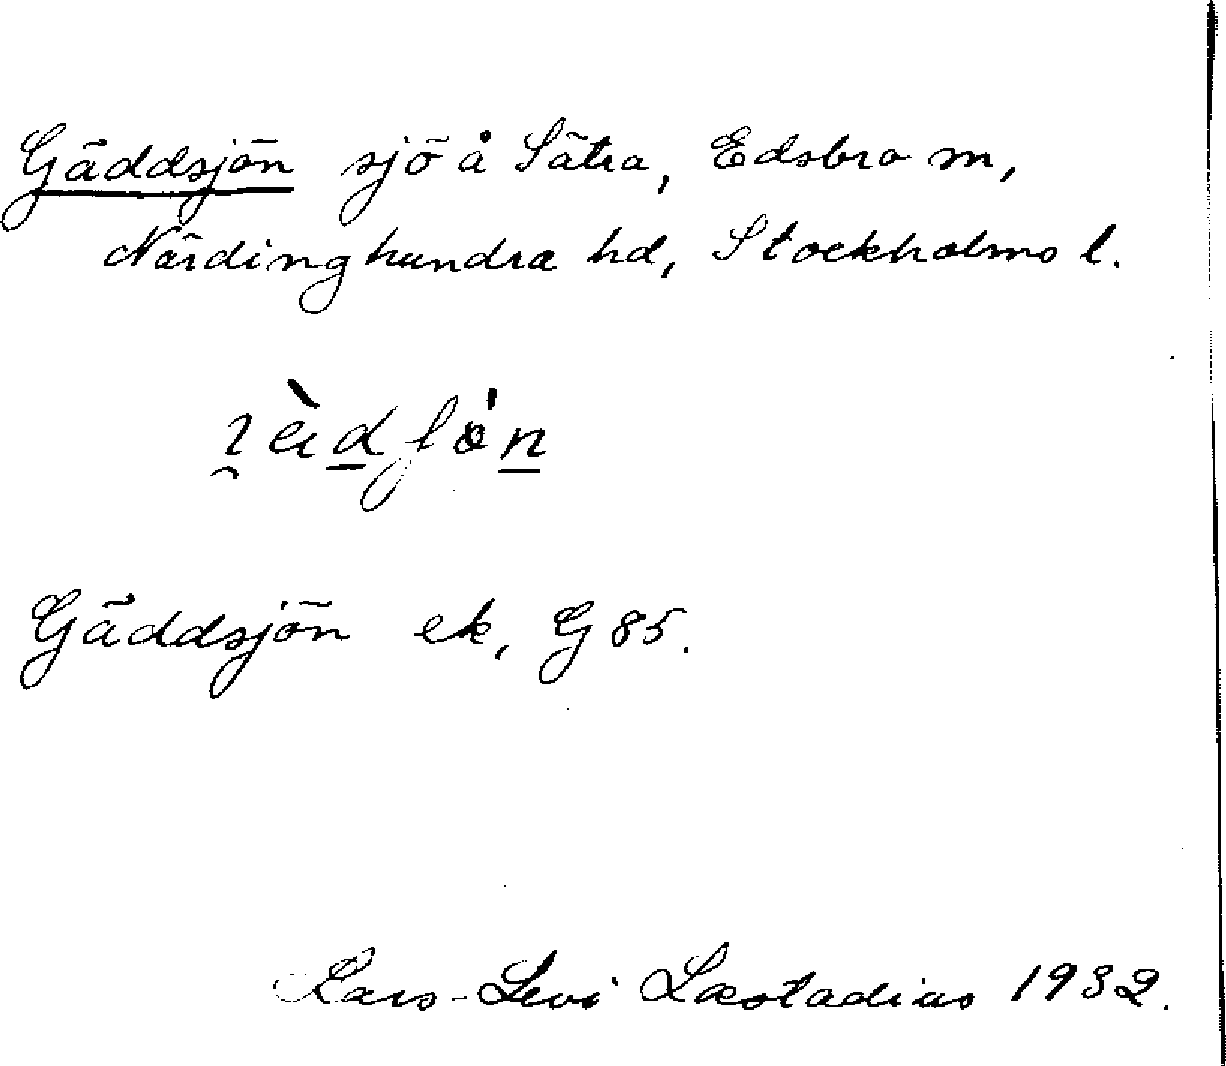 Gäddsjön sjö å Sätra, Edsbro sn,
Närdinghundra hd, Stockholms l.
Gäddsjön ek, G 85.
Lars-Levi Læstadius 1932.